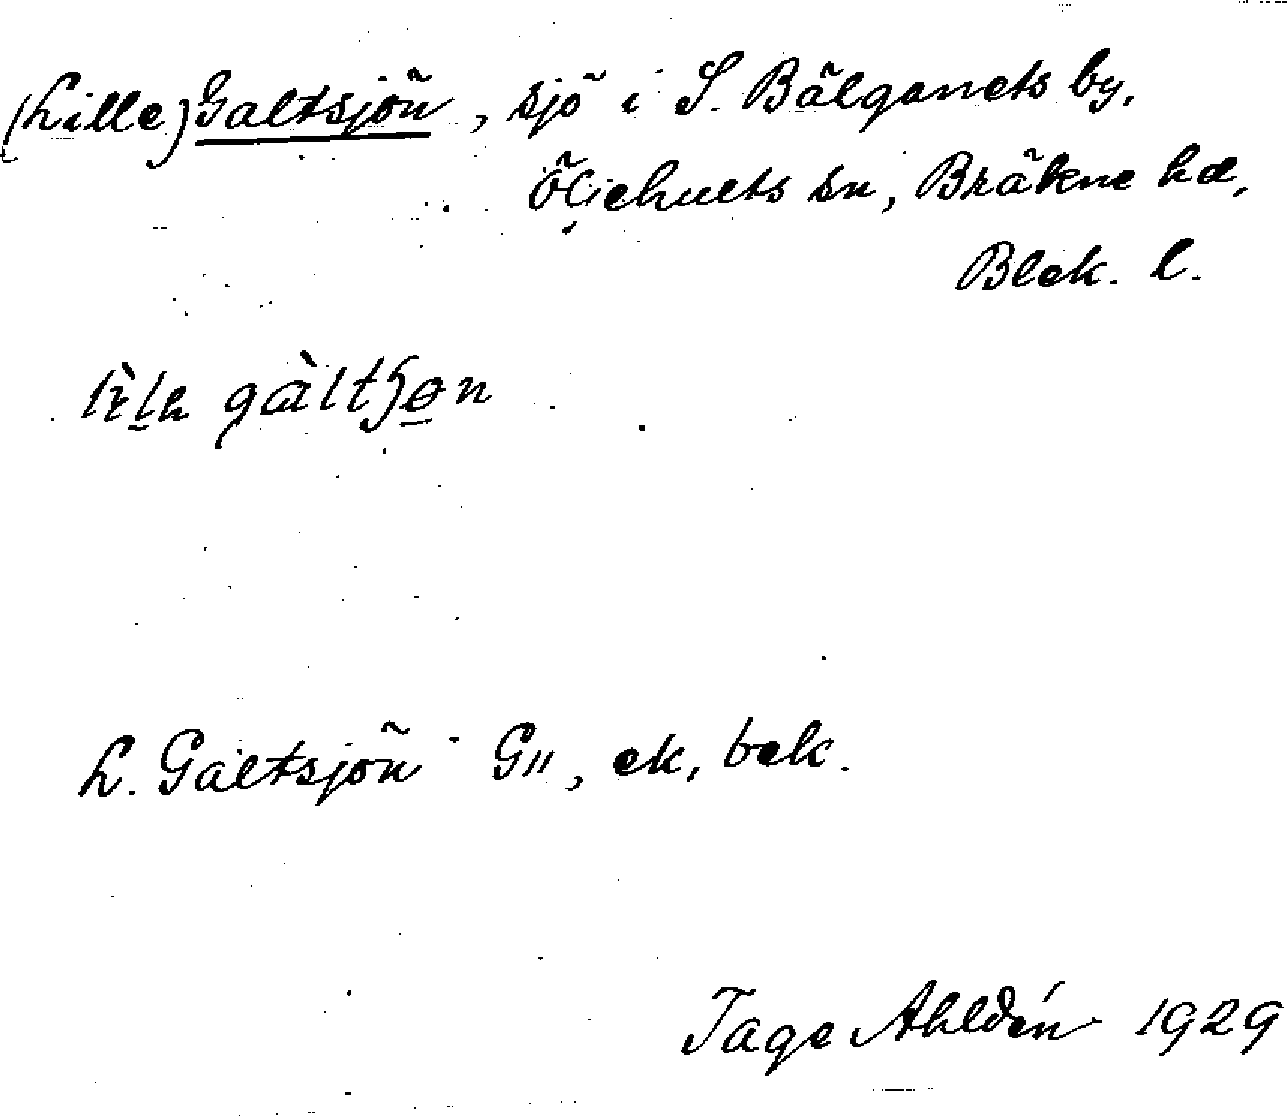 (Lille) Galtsjön, sjö i S. Bälganets by,
Öljehults sn, Bräkne hd,
Blek. l.
L. Galtsjön G11, ek, bek.
Tage Ahldén 1929